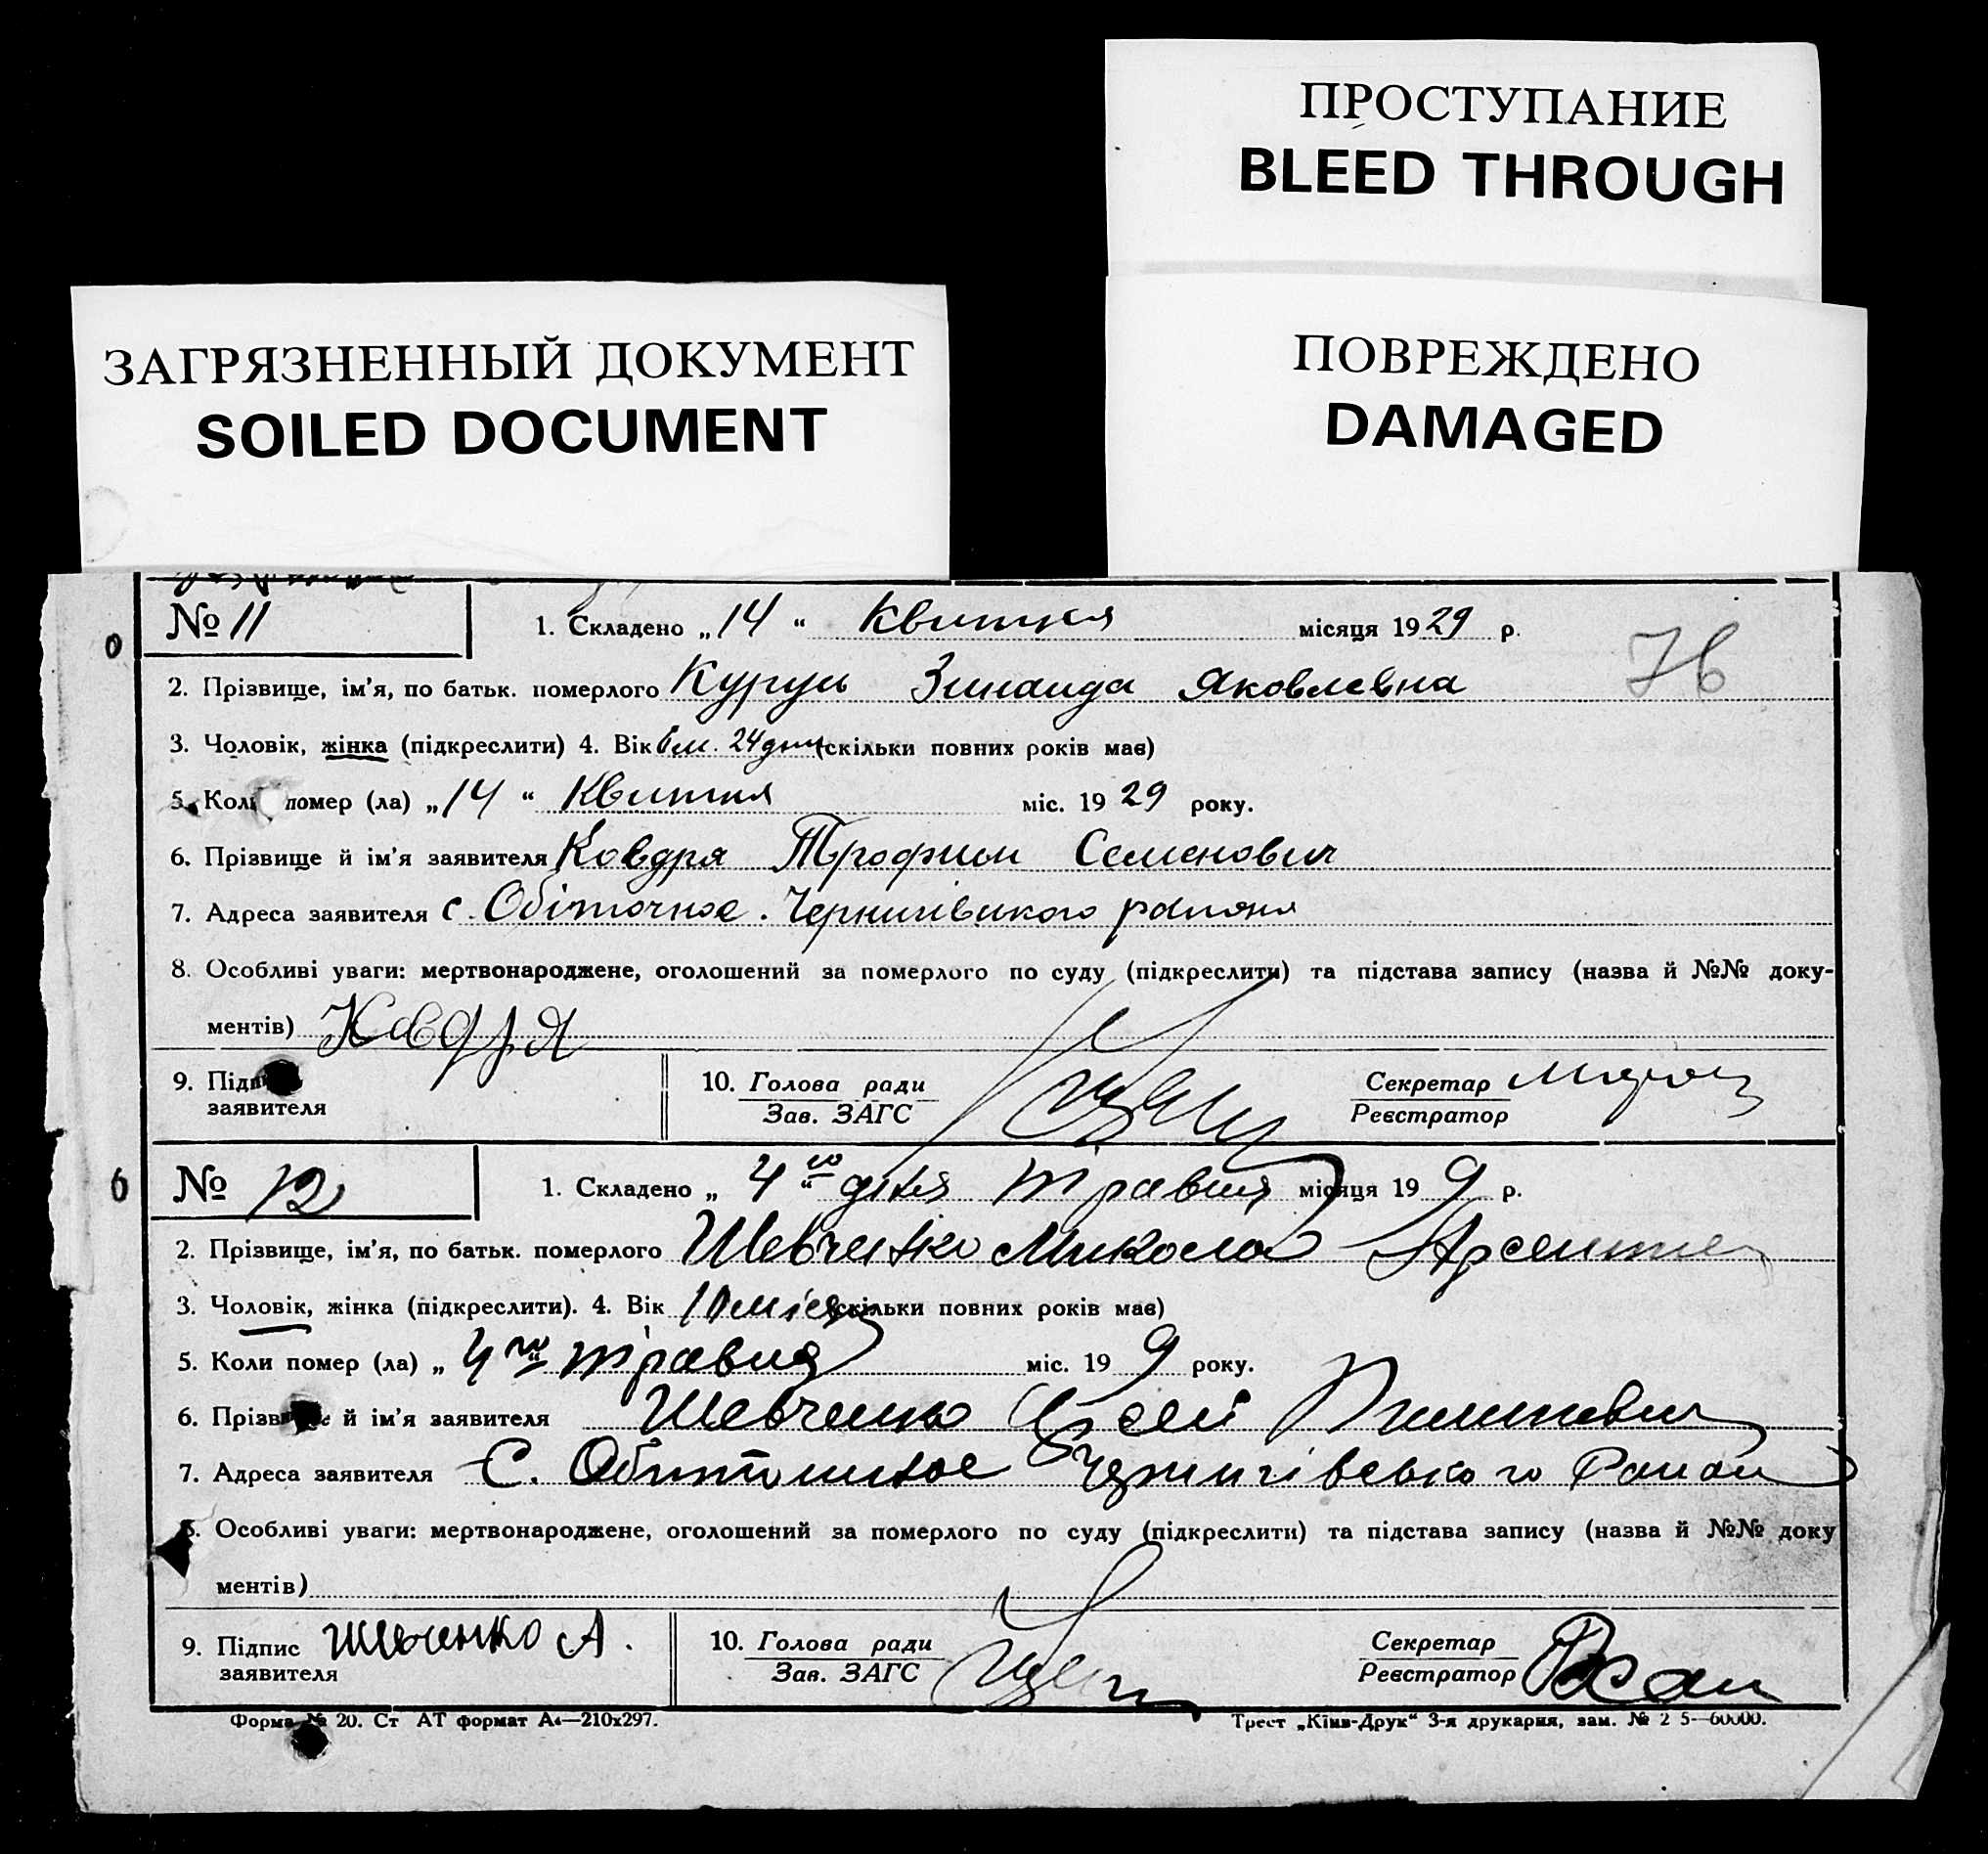 ПРОСТУПАНИЕ
BLEED THROUGH
ЗАГРЯЗНЕННЫЙ ДОКУМЕНТ
SOILED DOCUMENT
ПОВРЕЖДЕНО
DAMAGED
№ 11
1. Складено „14“ Квитня місяця 1929 р.
76
2. Прізвище, ім'я, по батьк. померлого Зинаида Яковлевна
3. Чоловік, жінка (підкреслити) 4. Вік 6 м. 24 дні (скільки повних років має)
5. Коли помер (ла) „14“ Квитня міс. 1929 року.
6. Прізвище й ім'я заявителя Ковдря Трофим Семенович
7. Адреса заявителя с. Обіточное. Чернигівського района
8. Особливі уваги: мертвонароджене, оголошений за померлого по суду (підкреслити) та підстава запису (назва й №№ доку-
ментів) Ковдря
9. Підпис
заявителя
10. Голова ради
Зав. ЗАГС
Секретар
Реєстратор
№ 12
1. Складено „4го“ дня травня місяця 199 р.
2. Прізвище, ім'я, по батьк. померлого Шевченко Микола
3. Чоловік, жінка (підкреслити). 4. Вік 10 місяц (скільки повних років має)
5. Коли помер (ла) „4го“ травня міс. 199 року.
6. Прізвище й ім'я заявителя Шевченко
7. Адреса заявителя С. Чернигівського Район
8. Особливі уваги: мертвонароджене, оголошений за померлого по суду (підкреслити) та підстава запису (назва й №№ доку
ментів)
9. Підпис Шевченко А.
заявителя
10. Голова ради
Зав. ЗАГС
Секретар
Реєстратор
Форма № 20. Ст АТ формат А4—210х297.
Трест „Київ-Друк“ 3-я друкарня, зам. № 2 5—60000.